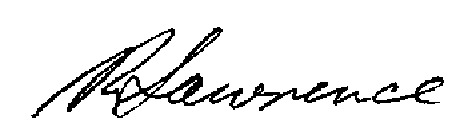 R Lawrence